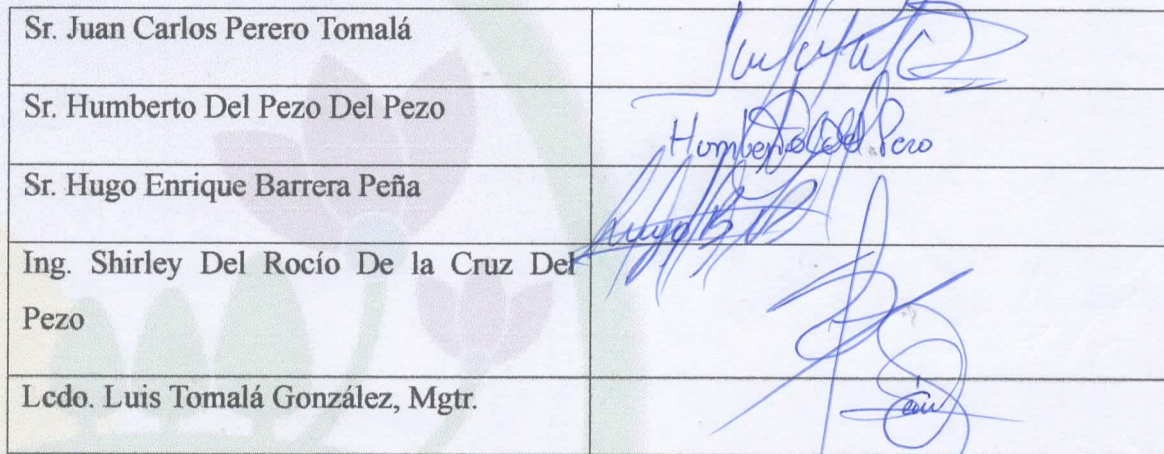 Sr. Juan Carlos Perero Tomalá
Sr. Humberto Del Pezo Del Pezo
Humberto Del Pezo
Sr. Hugo Enrique Barrera Peña
Ing. Shirley Del Rocío De la Cruz Del
Pezo
Lcdo. Luis Tomalá González, Mgtr.